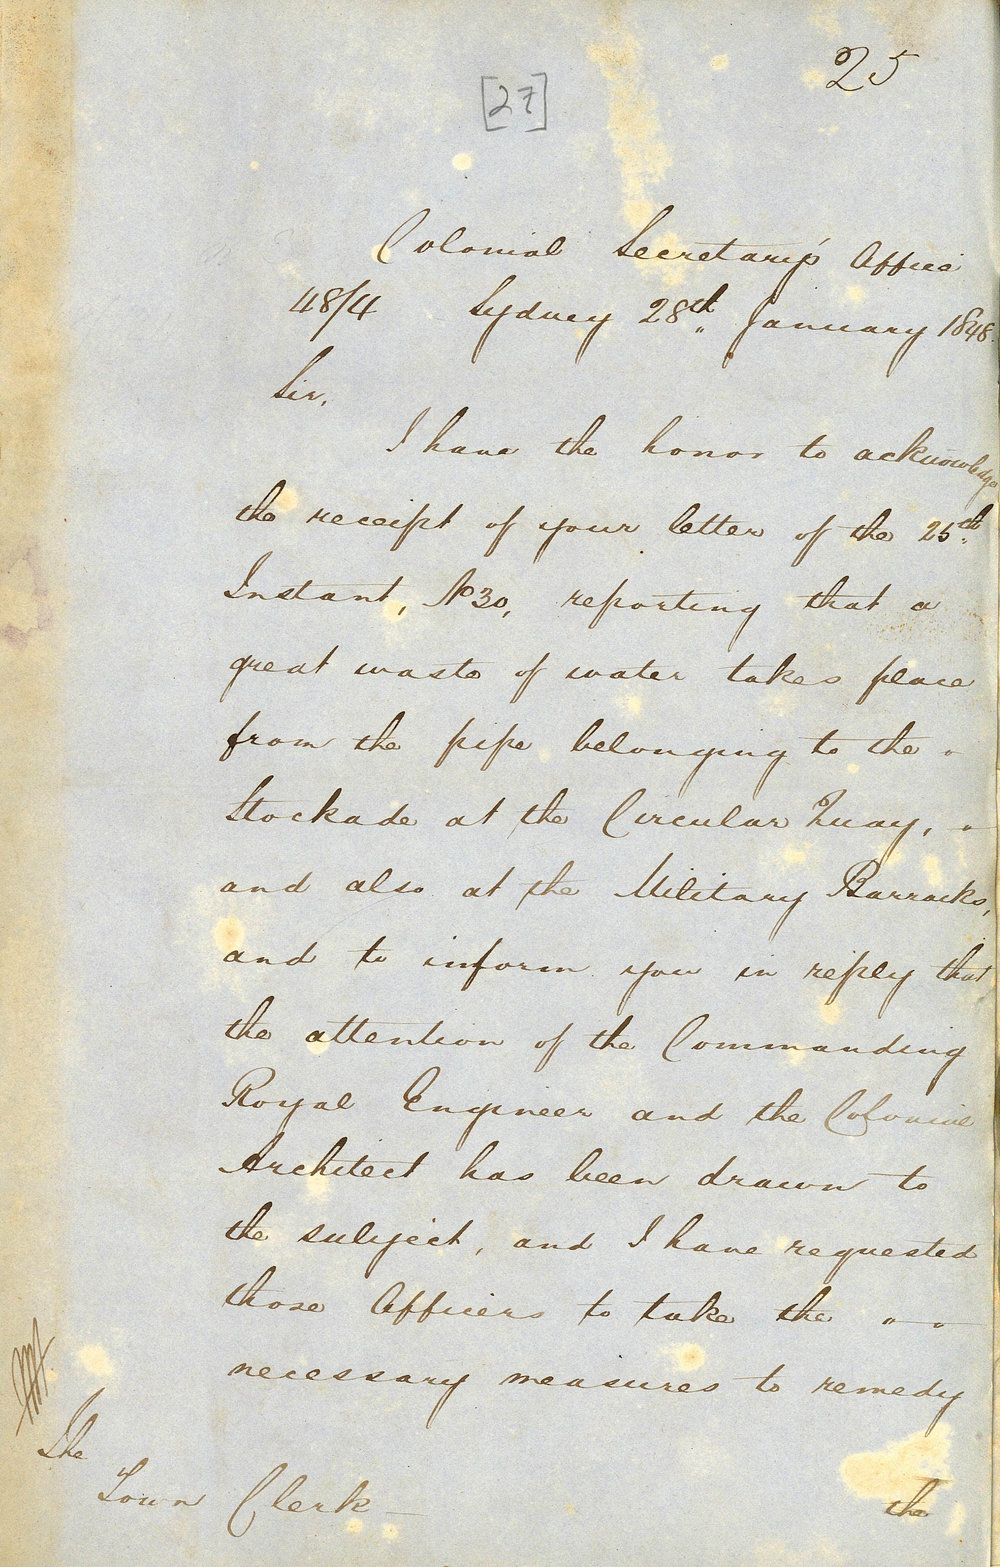 25
[27]
Colonial Secretary's Office
48/4 Sydney 28th January 1848.
Sir,
I have the honor to acknowledge
the receipt of your letter of the 25th
Instant, No 30, reporting that a
great waste of water takes place
from the pipe belonging to the
Stockade at the Circular Quay,
and also at the Military Barracks,
and to inform you in reply that
the attention of the Commanding
Royal Engineer and the Colonial
Architect has been drawn to
the subject, and I have requested
those Officers to take the
necessary measures to remedy
The
Town Clerk —
the